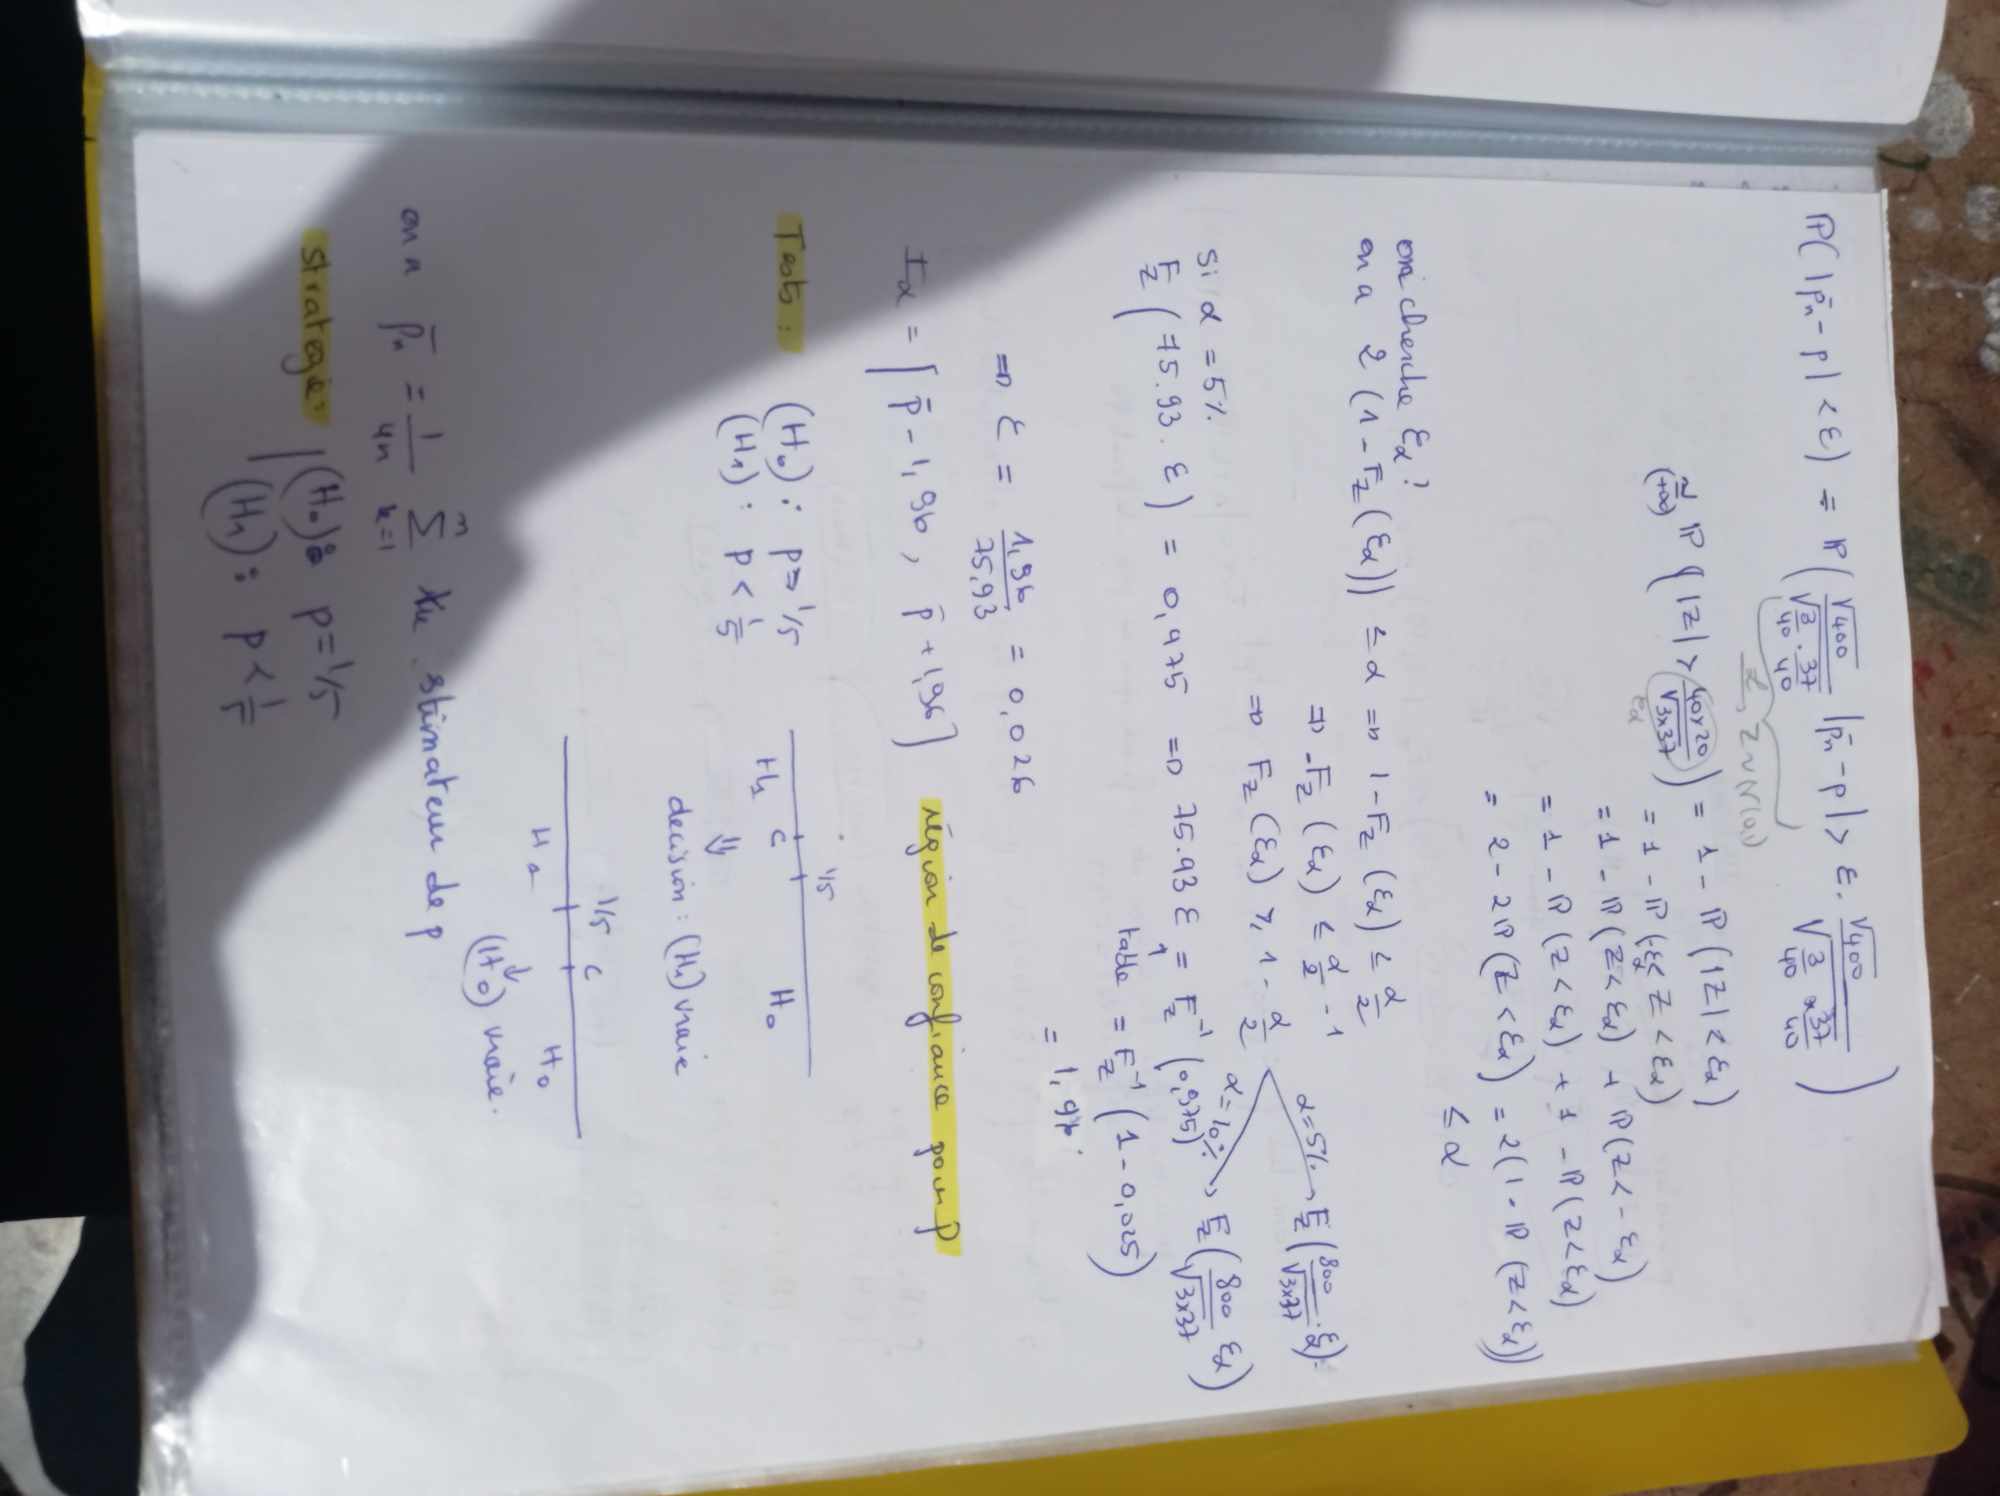 P( |p̄n - p| < ε) = P( √400 / √(3/40 · 37/40) |p̄n - p| > ε. √400 / √(3/40 × 37/40) )
L, Z ~ N(0,1)
≃ (+∞) P { |Z| > 40×20 / √3×37 ) = 1 - P (|Z| < εα)
εα
= 1 - P (-εα < Z < εα)
= 1 - P (Z < εα) + P(Z < - εα)
= 1 - P (Z < εα) + 1 - P(Z < εα)
= 2 - 2P (Z < εα) = 2(1 - P (Z < εα))
≤ α
on cherche εα ?
on a 2 (1 - FZ (εα)) ≤ α => 1 - FZ (εα) ≤ α/2
=> -FZ (εα) ≤ α/2 - 1
=> FZ (εα) ≥ 1 - α/2
α=5% → FZ (800/√3×37 . εα).
α=10% → FZ (800/√3×37 εα)
Si α = 5%
FZ ( 75.93. ε ) = 0,975 => 75.93 ε = FZ^-1 (0,975)
table = FZ^-1 (1 - 0,025)
= 1,96
=> ε = 1,96 / 75,93 = 0,026
Iα = [ p̄ - 1,96 , p̄ + 1,96 ] région de confiance pour p
Tests : (H0) : p = 1/5
(H1) : p < 1/5
1/5
H1 C H0
⇓
decision : (H1) vraie
1/5 C
H1 H0
↓
(H0) vraie.
on a p̄n = 1/4n Σ k=1 n Xk estimateur de p
strategie : (H0) : p = 1/5
(H1) : p < 1/5